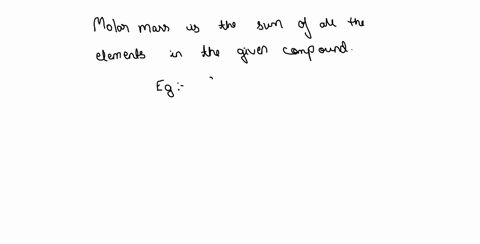 Molar mass is the sum of all the
elements in the given compound.
Eg:-